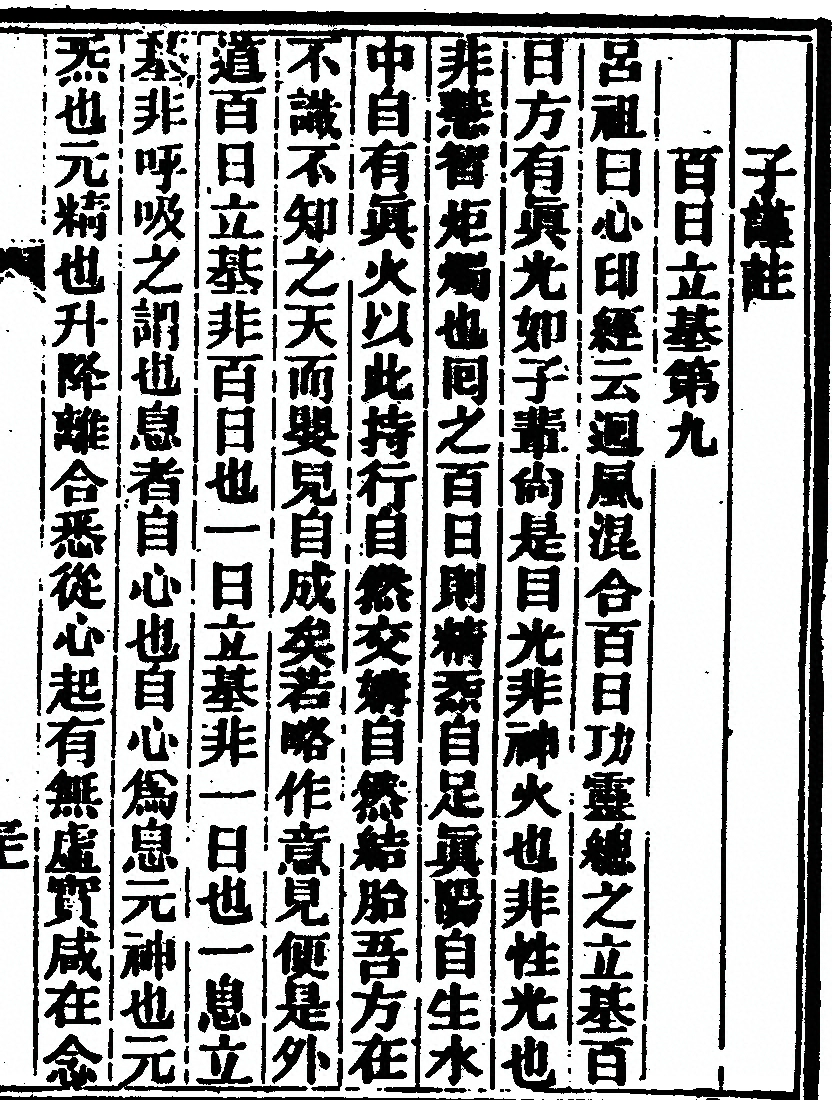 子謹註
百日立基第九
呂祖曰心印經云迴風混合百日功靈總之立基百
日方有眞光如子輩尙是目光非神火也非性光也
非慧智炬燭也囘之百日則精炁自足眞陽自生水
中自有眞火以此持行自然交媾自然結胎吾方在
不識不知之天而嬰兒自成矣若略作意見便是外
道百日立基非百日也一日立基非一日也一息立
基非呼吸之謂也息者自心也自心爲息元神也元
炁也元精也升降離合悉從心起有無虛實咸在念